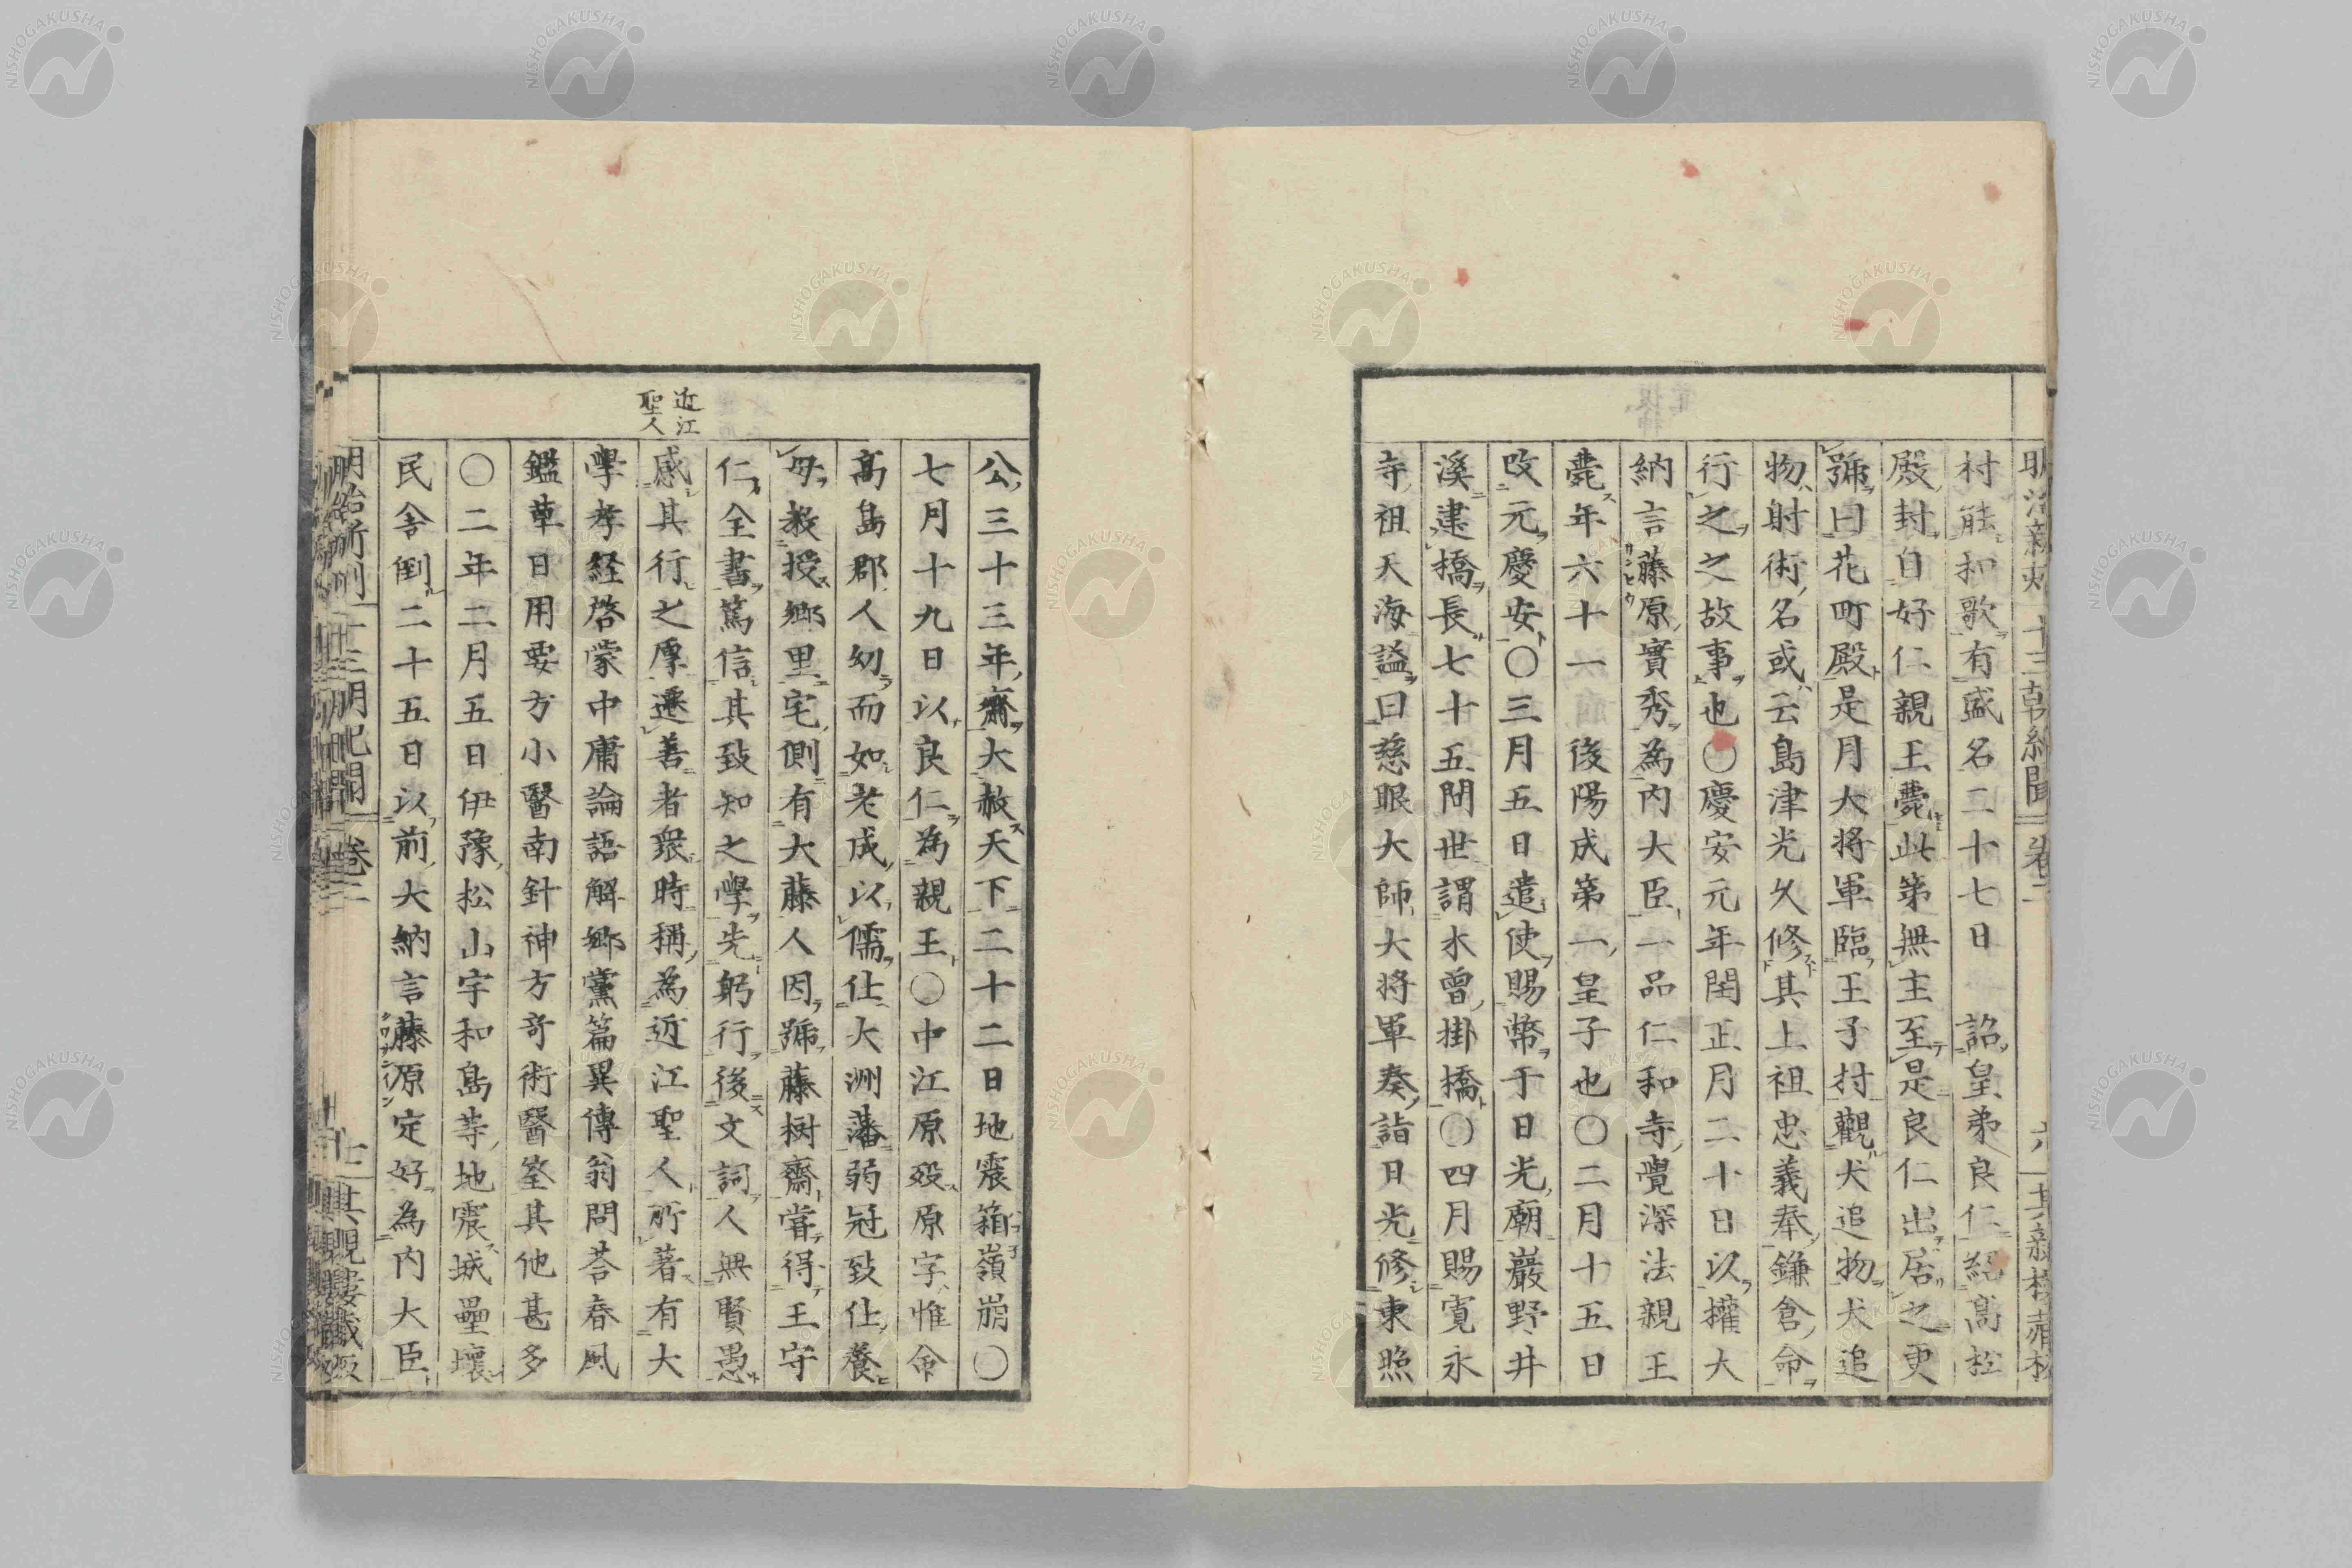 村能和歌有盛名二十七日　詔皇弟良仁紹高松
殿封自好仁親王薨此第無主至是良仁出居之更
號曰花町殿是月大将軍臨王子村觀犬追物犬追
物射術名或云島津光久修其上祖忠義奉鎌倉命
行之之故事也〇慶安元年閏正月二十日以權大
納言藤原實秀為内大臣一品仁和寺覺深法親王
薨年六十一後陽成第一皇子也〇二月十五日
改元慶安〇三月五日遣使賜幣于日光廟巖野井
溪建橋長七十五間世謂木曾掛橋〇四月賜寛永
寺祖天海謚曰慈眼大師大将軍奏詣日光修東照
近江
聖人
公三十三年齋大赦天下二十二日地震箱嶺崩〇
七月十九日以良仁為親王〇中江原歿原字惟命
高島郡人幼而如老成以儒仕大洲藩弱冠致仕養
母教授郷里宅側有大藤人因號藤樹齋嘗得王守
仁全書篤信其致知之學先躬行後文詞人無賢愚
感其行之厚遷善者衆時稱為近江聖人所著有大
學孝経啓蒙中庸論語解郷黨篇異傳翁問荅春風
鑑草日用要方小醫南針神方奇術醫筌其他甚多
〇二年二月五日伊豫松山宇和島等地震城壘壞
民舎倒二十五日以前大納言藤原定好為内大臣